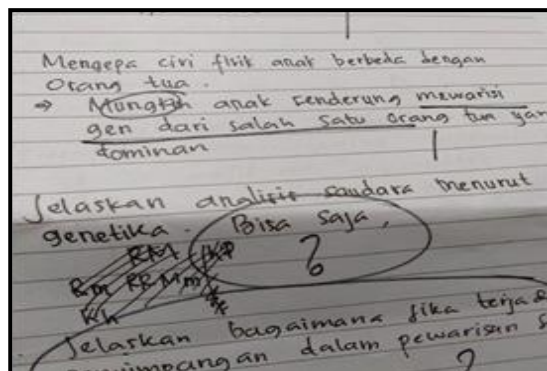 Mengapa ciri fisik anak berbeda dengan
Orang tua.
→ Mungkin anak cenderung mewarisi
gen dari salah satu orang tua yan
dominan
Jelaskan analisis saudara menurut
genetika. Bisa saja,
?
Jelaskan bagaimana jika terjad
dalam pewarisan s
?